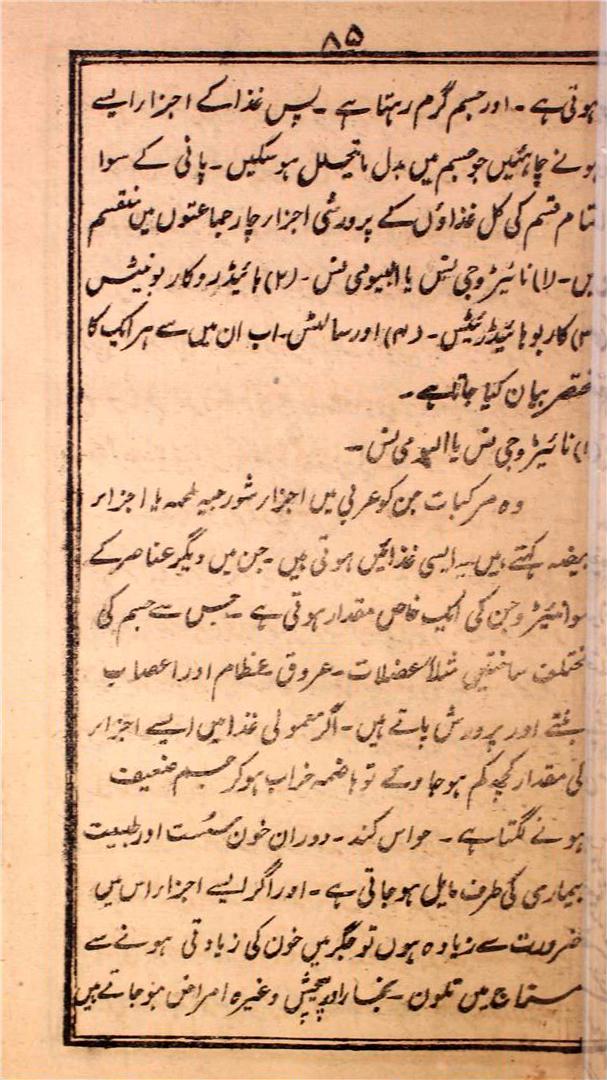 ۸۵
ہوتی ہے ۔ اور جسم گرم رہتا ہے ۔ پس غذا کے اجزار ایسے
ہونے چاہئیں جو جسم میں بدل ما یتحلل ہو سکیں ۔ پانی کے سوا
تمام قسم کی کل غذاؤں کے پرورشی اجزار چار جماعتوں میں منقسم
ہیں ۔ (۱) نائیٹروجی نس یا البیومی نس ۔ (۲) ہائیڈروکاربونیٹس
(۳) کاربوہائیڈریٹس ۔ (۴) اور سالٹس ۔ اب ان میں سے ہر ایک کا
مختصر بیان کیا جاتا ہے ۔
(۱) نائیٹروجی نس یا البیومی نس ۔
وہ مرکبات جن کو عربی میں اجزار شورجیہ لحمیہ یا اجزار
بیضہ کہتے ہیں یہ ایسی غذائیں ہوتی ہیں ۔ جن میں دیگر عناصر کے
سوا نیٹروجن کی ایک خاص مقدار ہوتی ہے ۔ جس سے جسم کی
مختلف ساختیں مثلاً عضلات ۔ عروق ۔ عظام اور اعصاب
بنتے اور پرورش پاتے ہیں ۔ اگر معمولی غذا میں ایسے اجزار
کی مقدار کچھ کم ہو جاوے تو ہاضمہ خراب ہو کر جسم ضعیف
ہونے لگتا ہے ۔ حواس کند ۔ دوران خون سست اور طبیعت
بیماری کی طرف مایل ہو جاتی ہے ۔ اور اگر ایسے اجزار اس میں
ضرورت سے زیادہ ہوں تو جگر میں خون کی زیادتی ہونے سے
مزاج میں تلون ۔ بخار اور پیچش وغیرہ امراض ہو جاتے ہیں